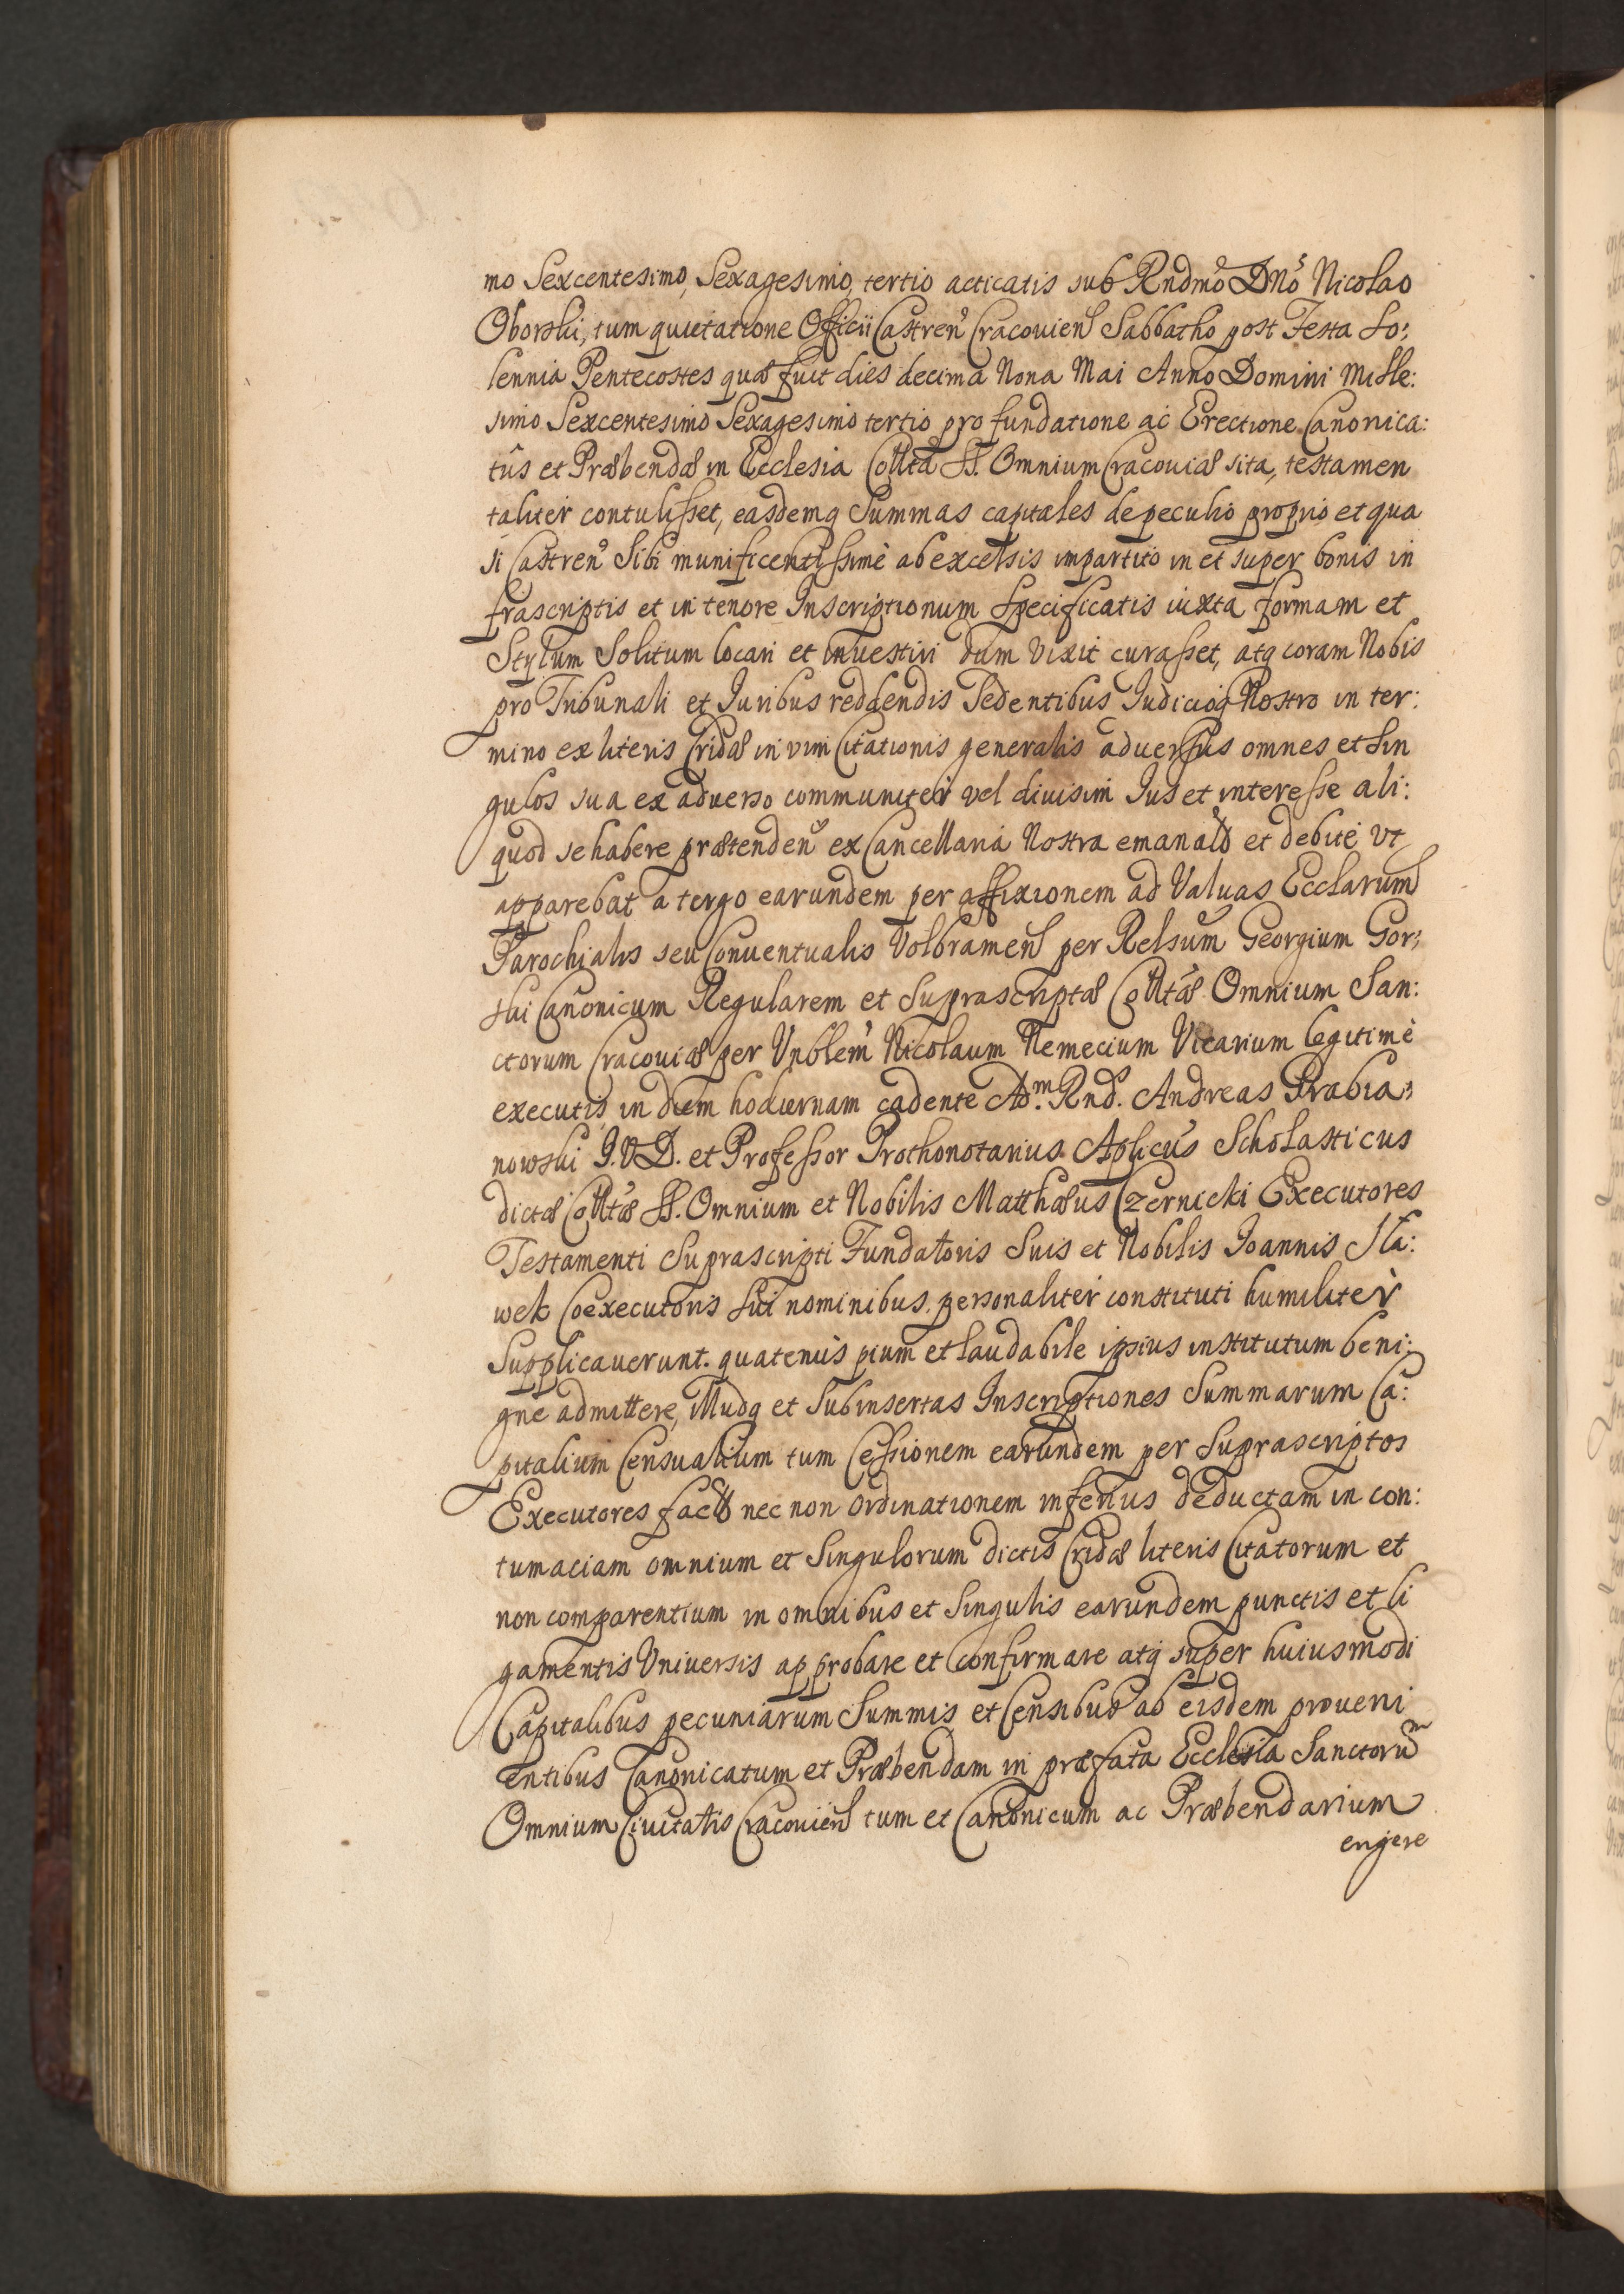 mo Sexcentesimo, Sexagesimo, tertio acticatis sub Rndmo Dno Nicolao
Oborski, tum quietatione Officii Castren Cracouien Sabbatho post Festa So:
lennia Pentecostes quæ fuit dies decima Nona Mai Anno Domini Mille:
simo Sexcentesimo Sexagesimo tertio pro fundatione ac Erectione Canonica:
tûs et Præbendæ in Ecclesia Collta SS. Omnium Cracouiæ sita, testamen
taliter contulisset, easdemq Summas capitales de peculio proprio et qua
si Castren Sibi munificentissimè ab excelsis impartito in et super bonis in
frascriptis et in tenore Inscriptionum Specificatis iuxta formam et
Stylum Solitum locari et inuestiri dum vixit curasset, atq coram Nobis
pro Tribunali et Iuribus reddendis Sedentibus Iudicioq Nostro in ter:
mino ex literis Cridæ in vim Citationis generalis aduersus omnes et Sin
gulos sua ex aduerso communiter vel diuisim Ius et interesse ali:
quod se habere prætenden ex Cancellaria Nostra emanatis et debitè vt
apparebat a tergo earundem per affixionem ad Valuas Ecclarum
Parochialis seu Conuentualis Volbramen per Relsum Georgium Gor:
ski Canonicum Regularem et Suprascriptæ Colltæ Omnium San:
ctorum Cracouiæ per Vnblem Nicolaum Nemecium Vicarium legitimè
executis, in diem hodiernam cadente Adm. Rnd. Andreas Grabia:
nowski I.V.D. et Professor Prothonotarius Aplicus Scholasticus
dictæ Colltæ SS. Omnium et Nobilis Matthæus Czernicki Executores
Testamenti Suprascripti Fundatoris Suis et Nobilis Ioannis Sła:
wek Coexecutoris Sui nominibus personaliter constituti humiliter
Supplicauerunt. quatenus pium et laudabile ipsius institutum beni:
gne admittere, Illudq et Subinsertas Inscriptiones Summarum Ca:
pitalium Censualium tum Cessionem earundem per Suprascriptos
Executores fact nec non Ordinationem inferius deductam in con:
tumaciam omnium et Singulorum dictis Cridæ literis Citatorum et
non comparentium in omnibus et Singulis earundem punctis et li
gamentis Vniversis approbare et Confirmare atq super huiusmodi
Capitalibus pecuniarum Summis et Censibus ab eisdem proueni
entibus Canonicatum et Præbendam in præfata Ecclesia Sanctorum
Omnium Ciuitatis Cracouien tum et Canonicum ac Præbendarium
erigere